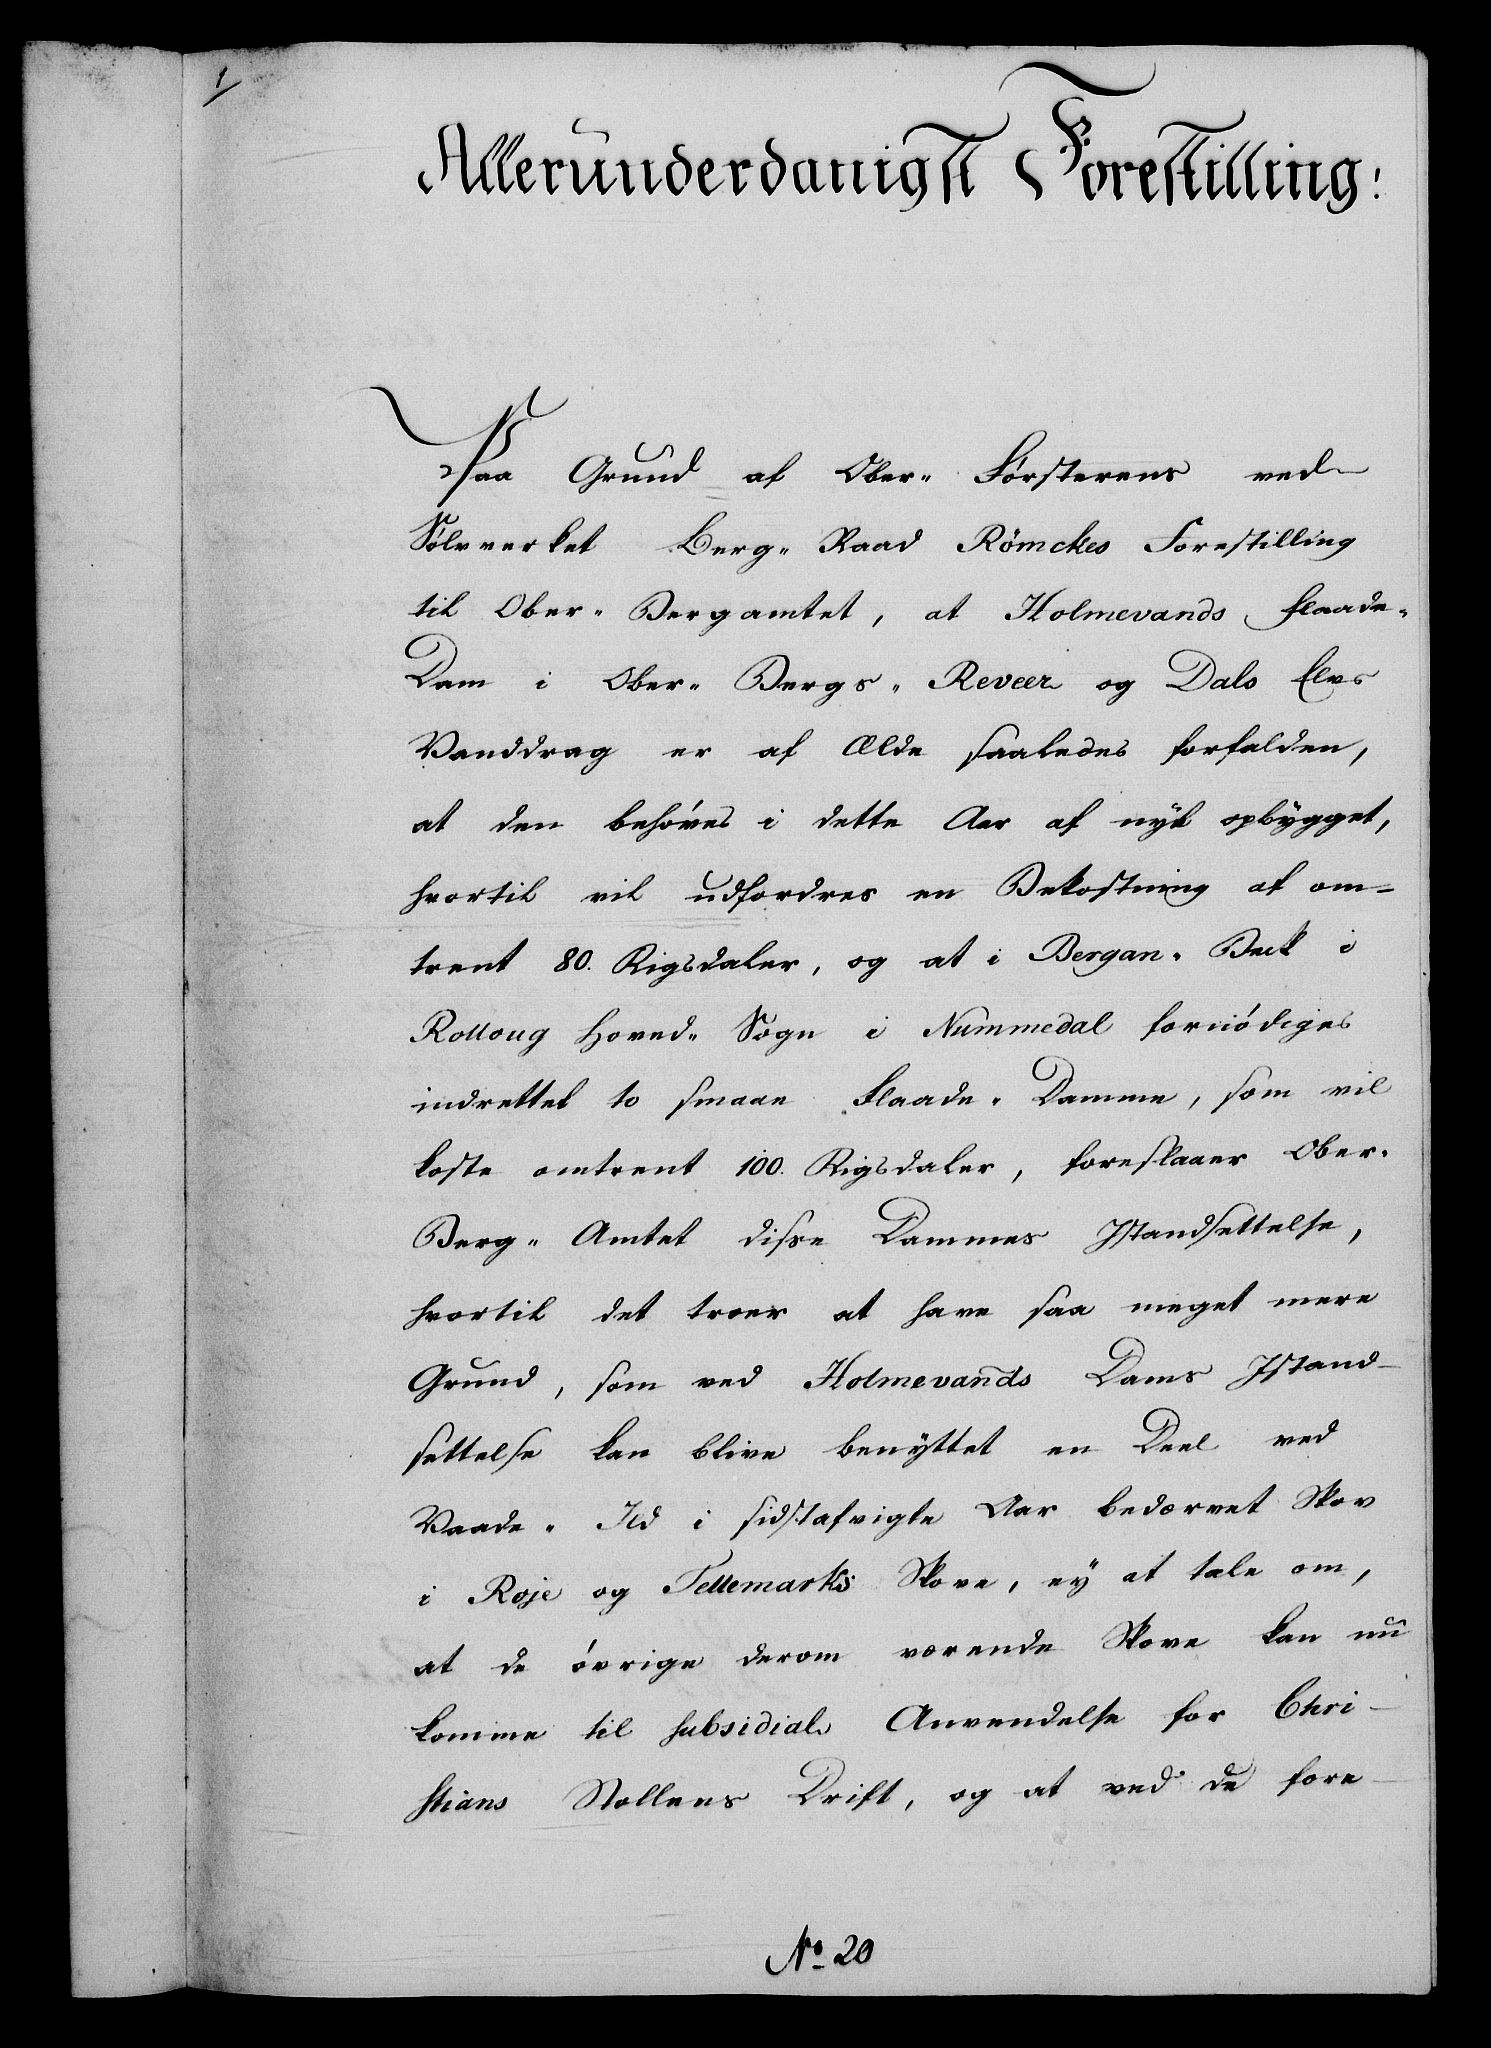 1
Allerunderdanigst Forestilling:
Paa Grund af Ober- Försterens ved
Sølvverket Berg- Raad Römckes Forestilling
til Ober- Bergamtet, at Holmevands Flaade-
Dam i Ober- Bergs- Reveer og Dals Elvs
Vanddrag er af Ælde saaledes forfalden,
at den behöves i dette Aar af nÿt opbÿgget,
hvortil vil udfordres en Bekostning af om-
trent 80. Rigsdaler, og at i Bergan- Bæk i
Rolloug Hoved- Sogn i Nummedal fornödiges
indrettet to smaae Flaade- Damme, som vil
koste omtrent 100. Rigsdaler, foreslaaer Ober-
Berg- Amtet disse Dammes Istandsettelse,
hvortil det troer at have saa meget mere
Grund, som ved Holmevands Dams Istand-
settelse kan blive benÿttet en Deel ved
Vaade- Ild i sidstafvigte Aar bedærvet Skov
i Roje og Tellemarks Skove, eÿ at tale om,
at de övrige derom værende Skove kan nu
komme til subsidial Anvendelse for Chri-
stians Stollens Drift, og at ved de fore-
No 20